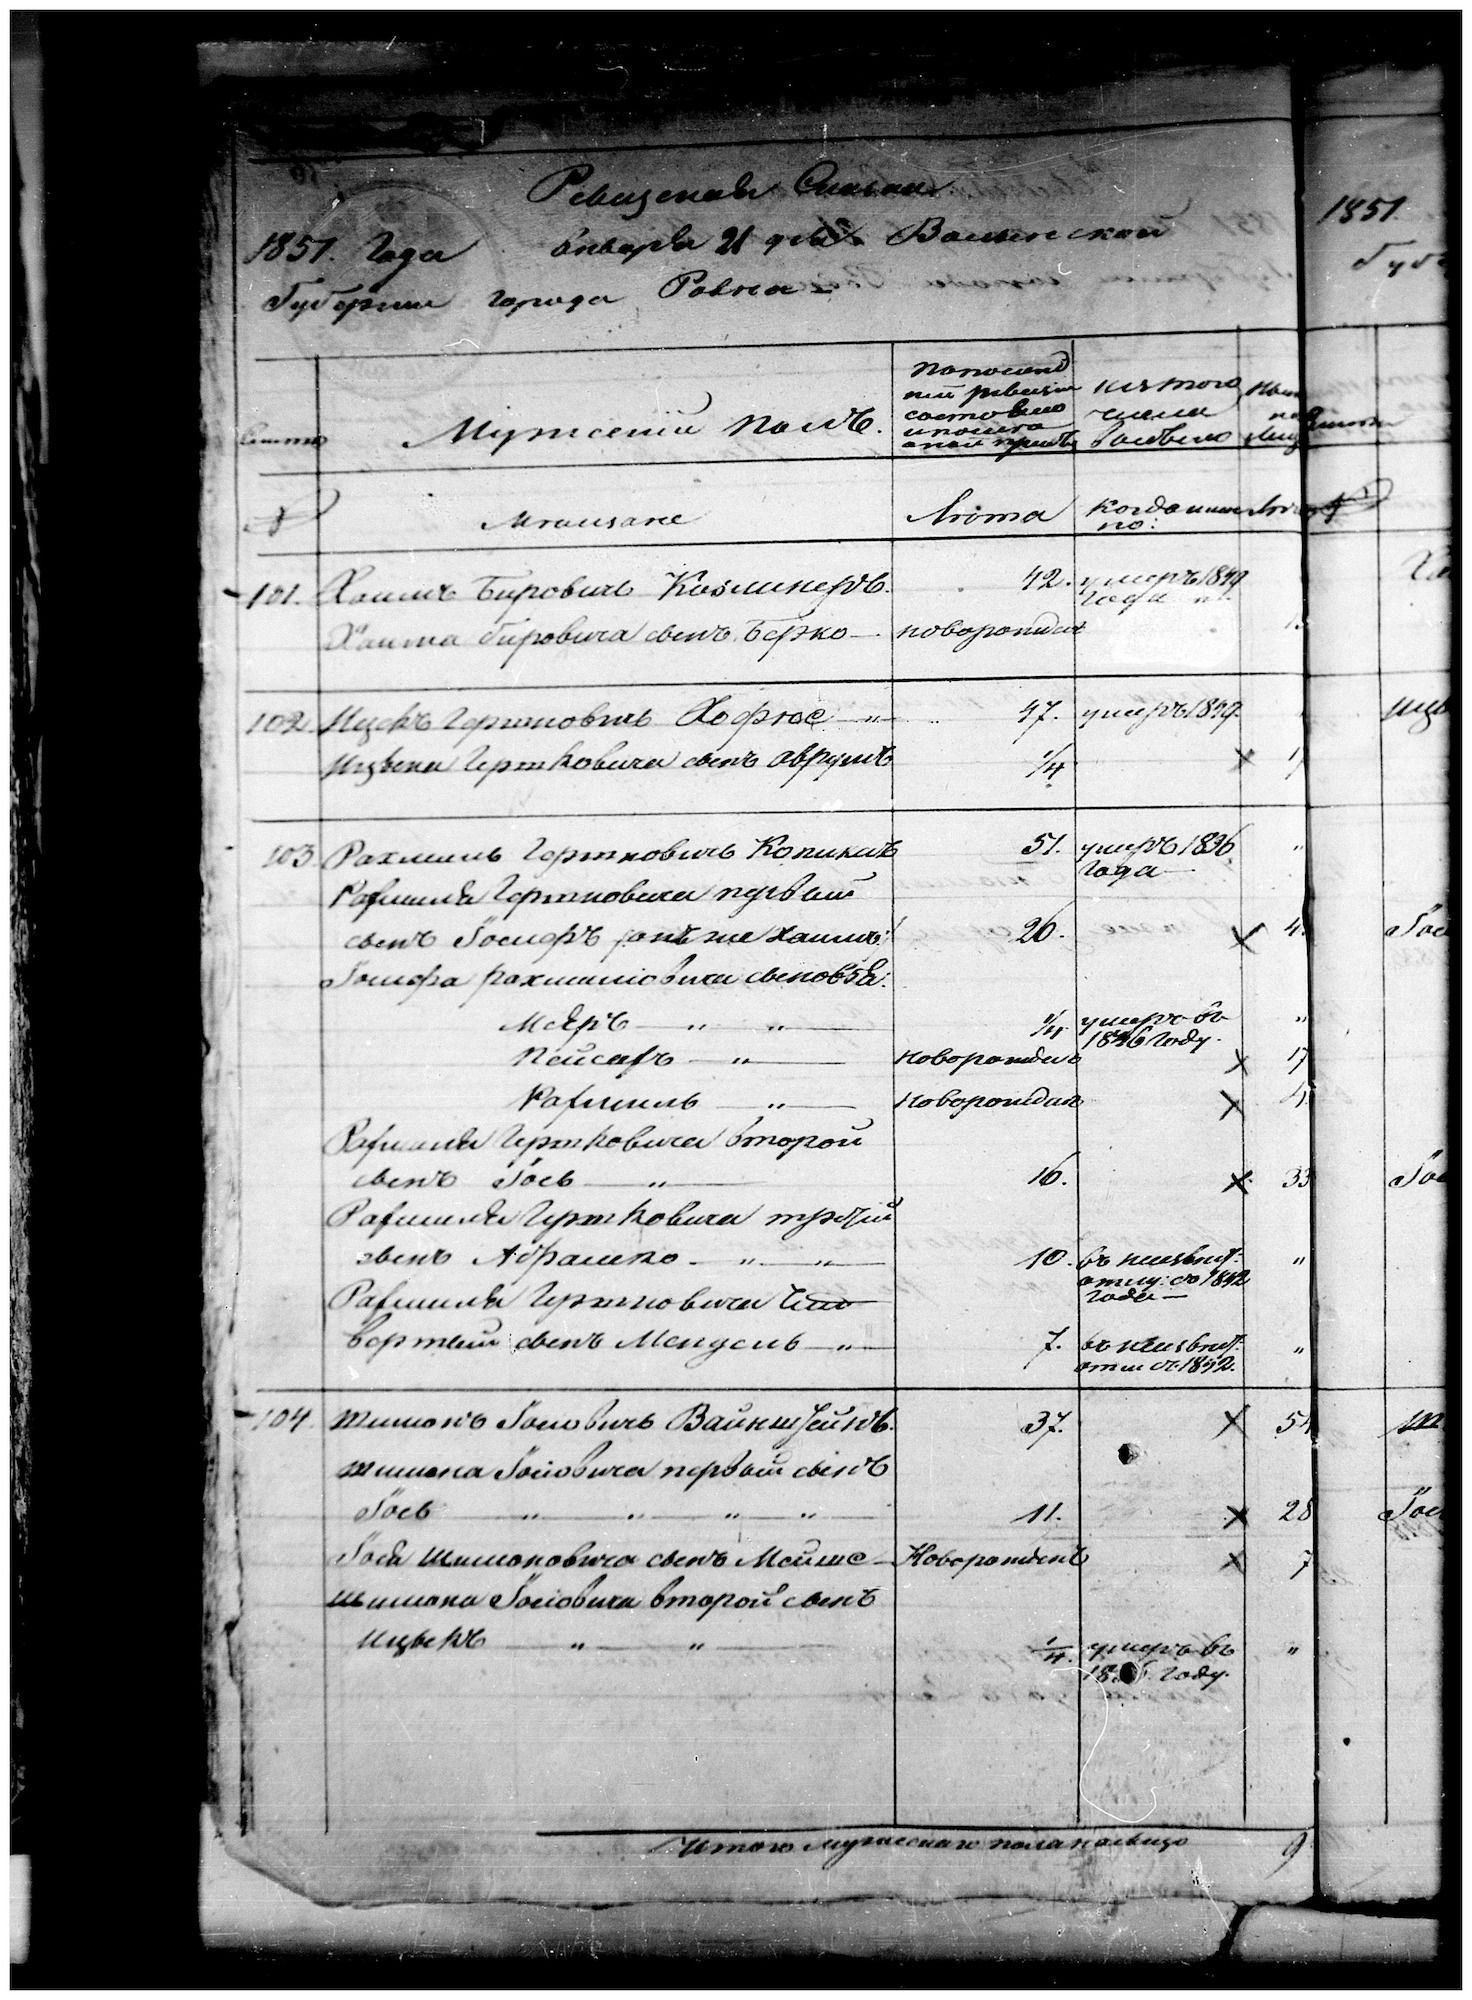 Ревизская Сказка
1851. Года Января 21 дня Волынской
Губернии города Ровна
Мужеский полъ.
По последней ревизіи состояло и после оной прибыло
Изъ того числа выбыло
№
Мещане
Лѣта
Когда именно:
Лѣта
101. Хаимъ Беровичъ 42. умеръ 1849 года
Хаима Беровича сынъ Берко новорожден
102. Ицекъ Гершковичъ 47. умеръ 1849.
Ицька Гершковича сынъ Аврумъ 1/4 × 17
103. Рахмиль Гершковичъ 51. умеръ 1836 года
Рахмиля Гершковича первый
сынъ Іосифъ онъ же Хаимъ 26. × 4
Іосифа Рахмиліовича сыновья:
Мееръ " " 1/4 умеръ въ 1846 году. "
Пейсахъ " новорожден × 17
Рахмиль " новорожден × 4
Рахмиля Гершковича второй
сынъ Іось " 16. × 33
Рахмиля Гершковича третій
сынъ Абрашко " " 10. въ неизвест: отлу: съ 1842 года "
Рахмиля Гершковича
вертый сынъ Мендель " 7. въ неизвест: отл: съ 1842. "
104. Шимонъ Іосіовичъ Вайнштейнъ. 37. × 54
Шимона Іосіовича первый сынъ
Іось " " " " 11. × 28
Іося Шимоновича сынъ Мойше Новорожденъ × 7
Шимона Іосіовича второй сынъ
Ицекъ " " 1/4. умеръ въ году. "
Итого мужескаго пола налицо 9
1851